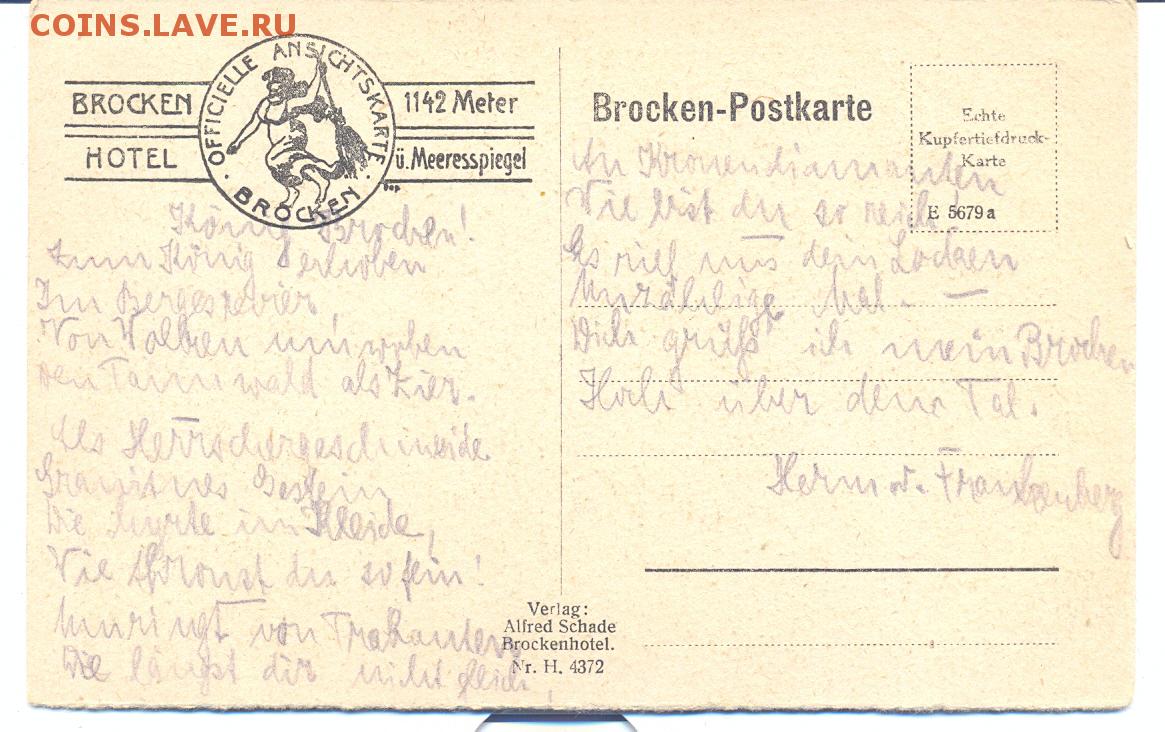 COINS.LAVE.RU
BROCKEN HOTEL
OFFICIELLE ANSICHTSKARTE
· BROCKEN ·
1142 Meter
ü. Meeresspiegel
König Brocken!
Zum König erhoben
Im Bergesrevier,
Von Wolken umwoben
den Tannwald als Zier.
Als Herrschergeschmeide
Granitnes Gestein
Die Myrte im Kleide,
Wie thronst du so fein!
Umringt von Trabanten
Die längst dir nicht gleich,
Verlag:
Alfred Schade
Brockenhotel.
Nr. H. 4372
Brocken-Postkarte
Echte
Kupfertiefdruck-
Karte
E 5679a
An Kronendiamanten
Wie bist du so reich!
Es rief uns dein Locken
Unzählige Mal. —
Dich grüß ich mein Brocken
Hoch über dem Tal.
Herm. v. Frankenberg